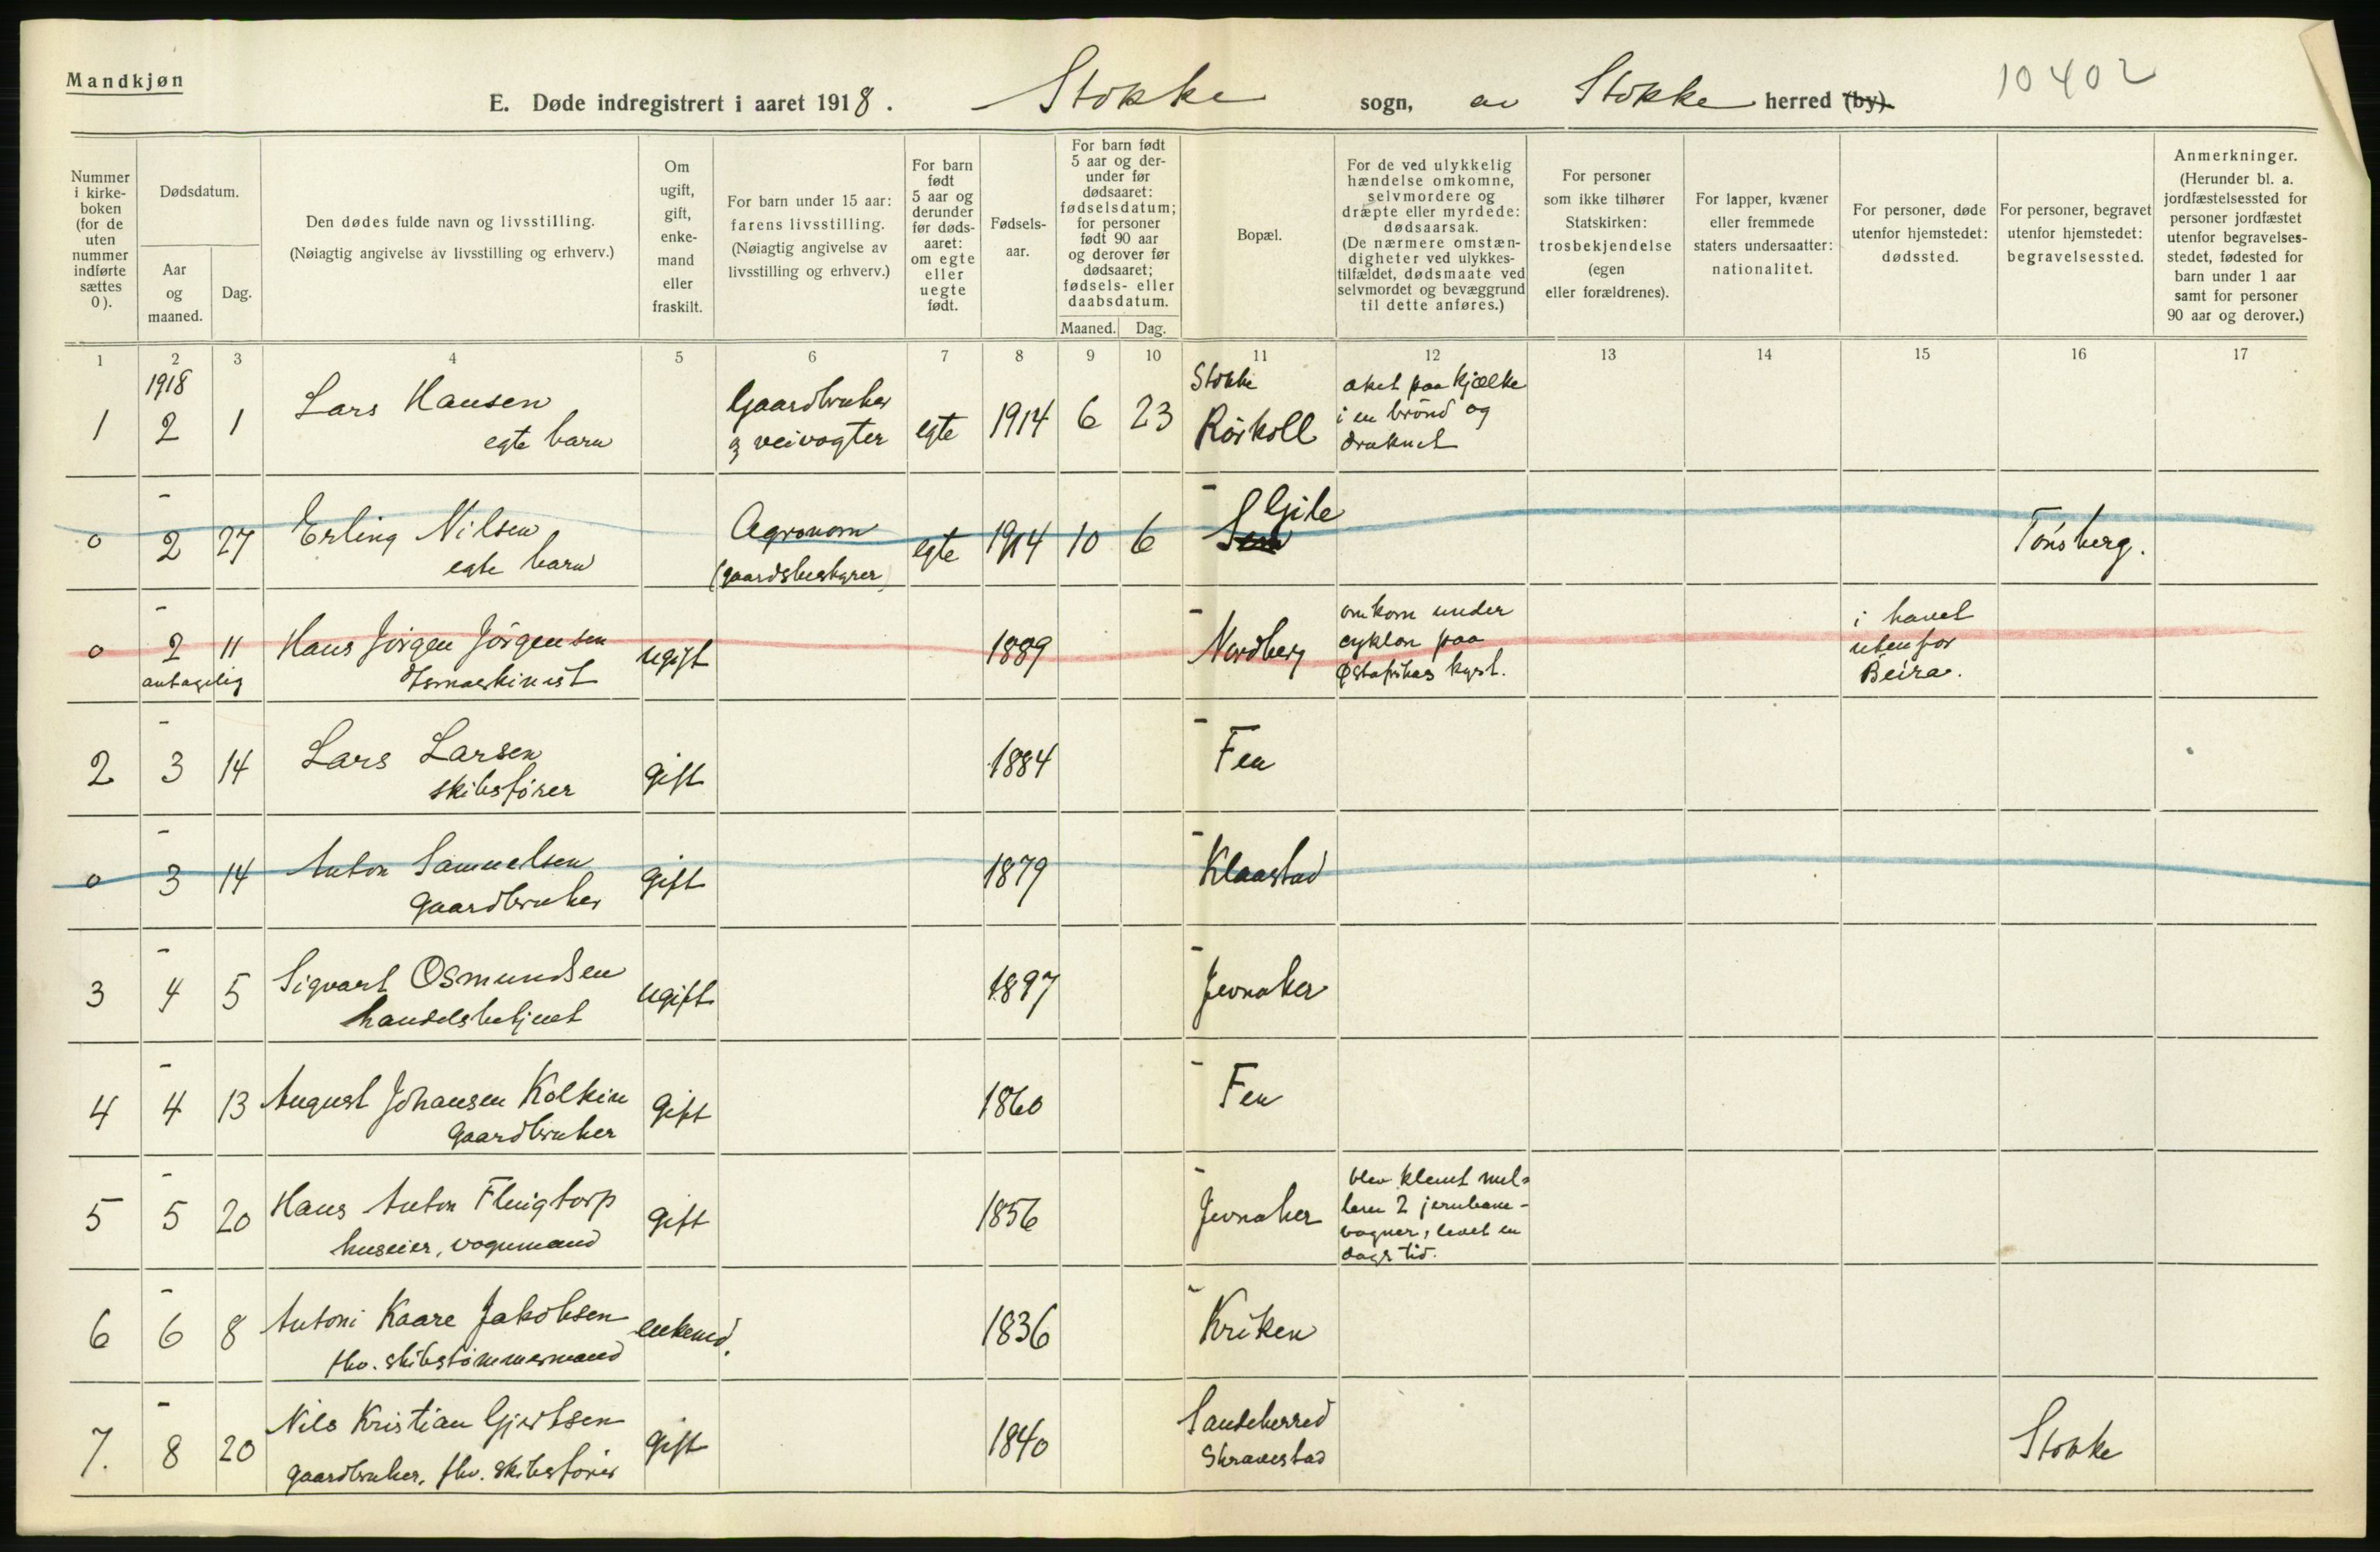 Mandkjøn
E. Døde indregistrert i aaret 1918. Stokke sogn, av Stokke herred (by).
10402
Nummer i kirkeboken (for de uten nummer indførte sættes 0).
Dødsdatum.
Aar og maaned.
Dag.
Den dødes fulde navn og livsstilling.
(Nøiagtig angivelse av livsstilling og erhverv.)
Om ugift, gift, enkemand eller fraskilt.
For barn under 15 aar: farens livsstilling.
(Nøiagtig angivelse av livsstilling og erhverv.)
For barn født 5 aar og derunder før dødsaaret: om egte eller uegte født.
Fødselsaar.
For barn født 5 aar og derunder før dødsaaret: fødselsdatum; for personer født 90 aar og derover før dødsaaret; fødsels- eller daabsdatum.
Maaned. Dag.
Bopæl.
For de ved ulykkelig hændelse omkomne, selvmordere og dræpte eller myrdede: dødsaarsak.
(De nærmere omstændigheter ved ulykkestilfældet, dødsmaate ved selvmordet og bevæggrund til dette anføres.)
For personer som ikke tilhører Statskirken: trosbekjendelse (egen eller forældrenes).
For lapper, kvæner eller fremmede staters undersaatter: nationalitet.
For personer, døde utenfor hjemstedet: dødssted.
For personer, begravet utenfor hjemstedet: begravelsessted.
Anmerkninger.
(Herunder bl. a. jordfæstelsessted for personer jordfæstet utenfor begravelsesstedet, fødested for barn under 1 aar samt for personer 90 aar og derover.)
1 2 3 4 5 6 7 8 9 10 11 12 13 14 15 16 17
1918
1 2 1 Lars Hansen
egte barn
Gaardbruker
og veivogter
egte 1914 6 23
Stokke
Rörkoll
aket paa kjælke
i en brönd og
druknet
0 - 2 27 Erling Nilsen
egte barn
Agronom
(gaardsbestyrer)
egte 1914 10 6
- Gile
Sem
Tönsberg.
0 - 2 11
antagelig
Hans Jörgen Jörgensen
2smaskinist
ugift 1889
- Nordberg
omkom under
cyklon paa
Østafrikas kyst.
i havet
utenfor
Beira.
2 - 3 14 Lars Larsen
skibsförer
gift 1884 - Fen
0 - 3 14 Anton Samuelsen
gaardbruker
gift 1879 - Klaastad
3 - 4 5 Sigvart Osmundsen
handelsbetjent
ugift 1897 - Jevnaker
4 - 4 13 August Johansen Kolkin
gaardbruker
gift 1860 - Fen
5 - 5 20 Hans Anton Fluigtorp
huseier, vognmand
gift 1856 - Jevnaker
blev klemt mel-
lem 2 jernbane-
vogner, levet en
dags tid.
6 - 6 8 Antoni Kaare Jakobsen
fhv. skibstömmermand
enkemd. 1836 - Kriken
7. - 8 20 Nils Kristian Gjertsen
gaardbruker, fhv. skibsförer
gift 1840
Sandeherred
Skravestad
Stokke